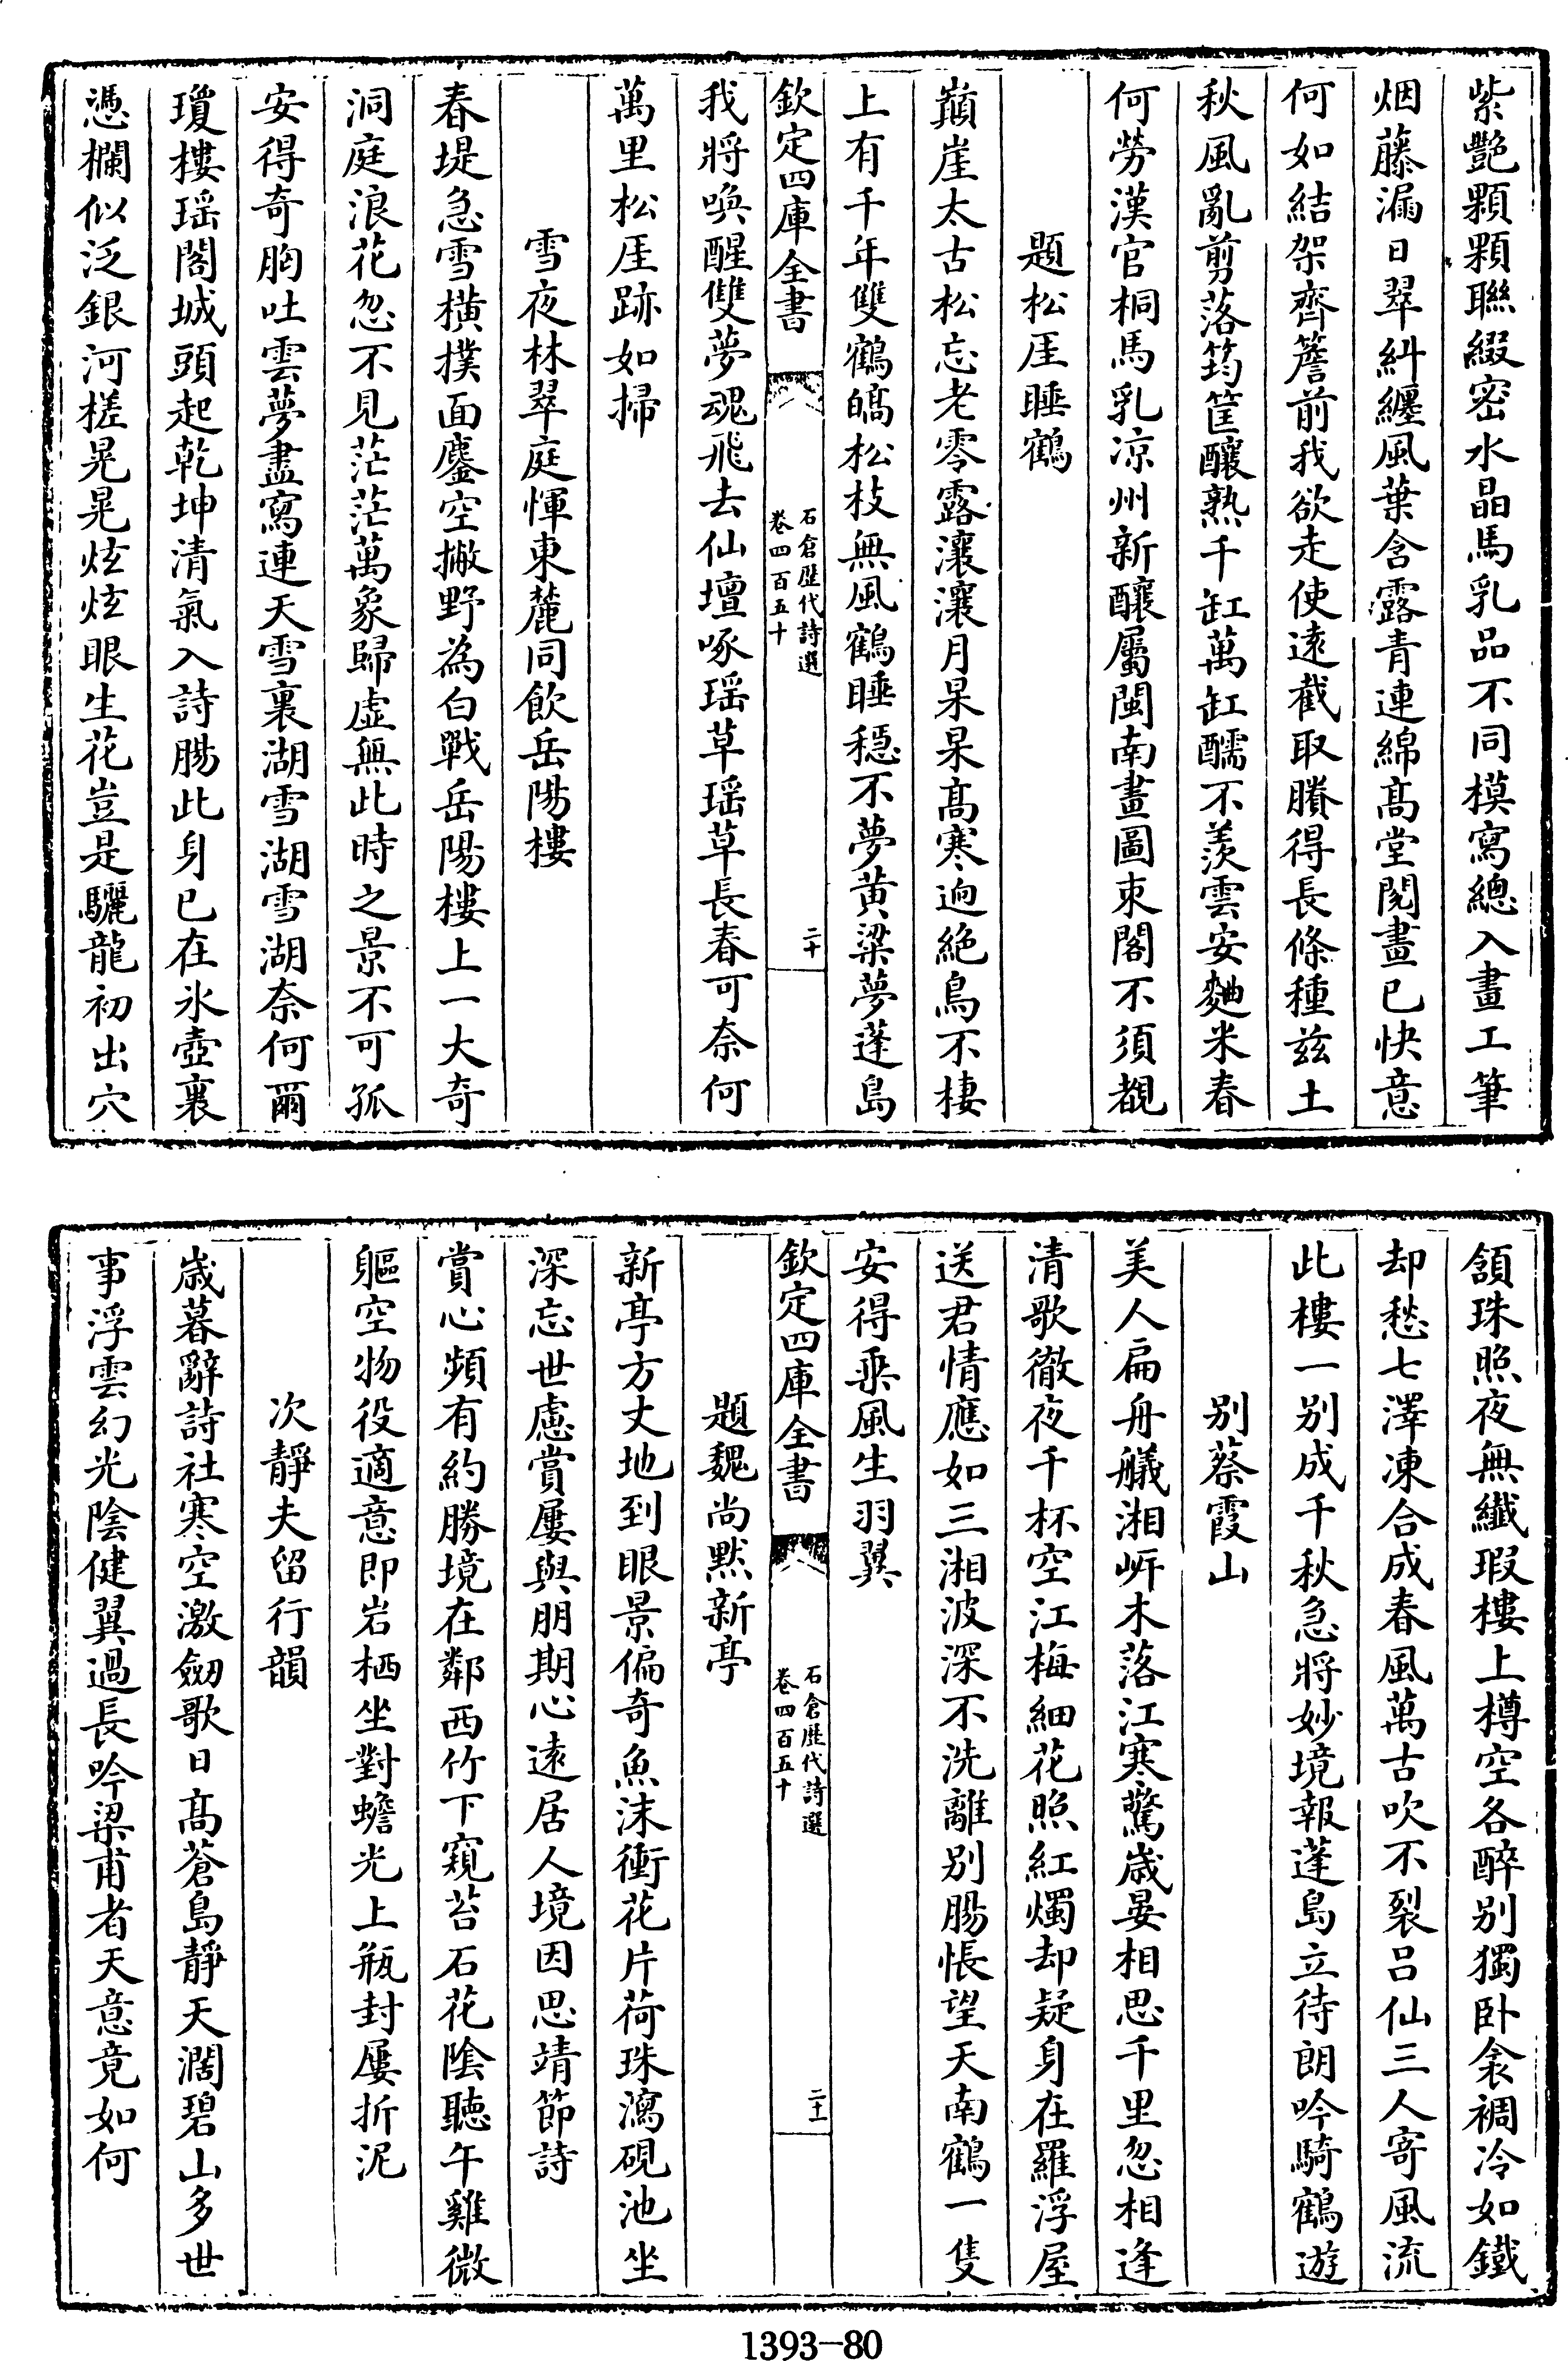 紫艷顆顆聯綴密水晶馬乳品不同模寫總入畫工筆
烟藤漏日翠糾纏風葉含露青連綿髙堂閲畫已快意
何如結架齊簷前我欲走使逺截取賸得長條種兹土
秋風亂剪落筠筐釀熟千缸萬缸醹不羡雲安麯米春
何勞漢官桐馬乳凉州新釀屬閩南畫圖束閣不須覩
題松厓睡鶴
巔崖太古松忘老零露瀼瀼月杲杲髙寒逈絶鳥不棲
上有千年雙鶴皜松枝無風鶴睡穩不夢黄粱夢蓬島
欽定四庫全書
石倉歴代詩選
卷四百五十
二十
我將喚醒雙夢魂飛去仙壇啄瑶草瑶草長春可奈何
萬里松厓跡如掃
雪夜林翠庭惲東麓同飲岳陽樓
春堤急雪横撲面鏖空撇野為白戰岳陽樓上一大奇
洞庭浪花忽不見茫茫萬象歸虛無此時之景不可孤
安得奇胸吐雲夢盡寫連天雪裏湖雪湖雪湖奈何爾
瓊樓瑶閣城頭起乾坤清氣入詩腸此身已在氷壺裏
憑欄似泛銀河槎晃晃炫炫眼生花豈是驪龍初出穴
頷珠照夜無纎瑕樓上樽空各醉别獨卧衾裯冷如鐵
却愁七澤凍合成春風萬古吹不裂吕仙三人寄風流
此樓一别成千秋急將妙境報蓬島立待朗吟騎鶴遊
别蔡霞山
美人扁舟艤湘㟁木落江寒驚歲晏相思千里忽相逢
清歌徹夜千杯空江梅細花照紅燭却疑身在羅浮屋
送君情應如三湘波深不洗離别腸悵望天南鶴一隻
安得乗風生羽翼
欽定四庫全書
石倉歴代詩選
卷四百五十
二十一
題魏尚默新亭
新亭方丈地到眼景偏奇魚沫衝花片荷珠瀉硯池坐
深忘世慮賞屢與朋期心逺居人境因思靖節詩
賞心頻有約勝境在鄰西竹下窺苔石花陰聽午雞微
軀空物役適意即岩栖坐對蟾光上瓶封屢折泥
次靜夫留行韻
歲暮辭詩社寒空激劒歌日髙蒼島靜天濶碧山多世
事浮雲幻光陰健翼過長吟梁甫者天意竟如何
1393-80